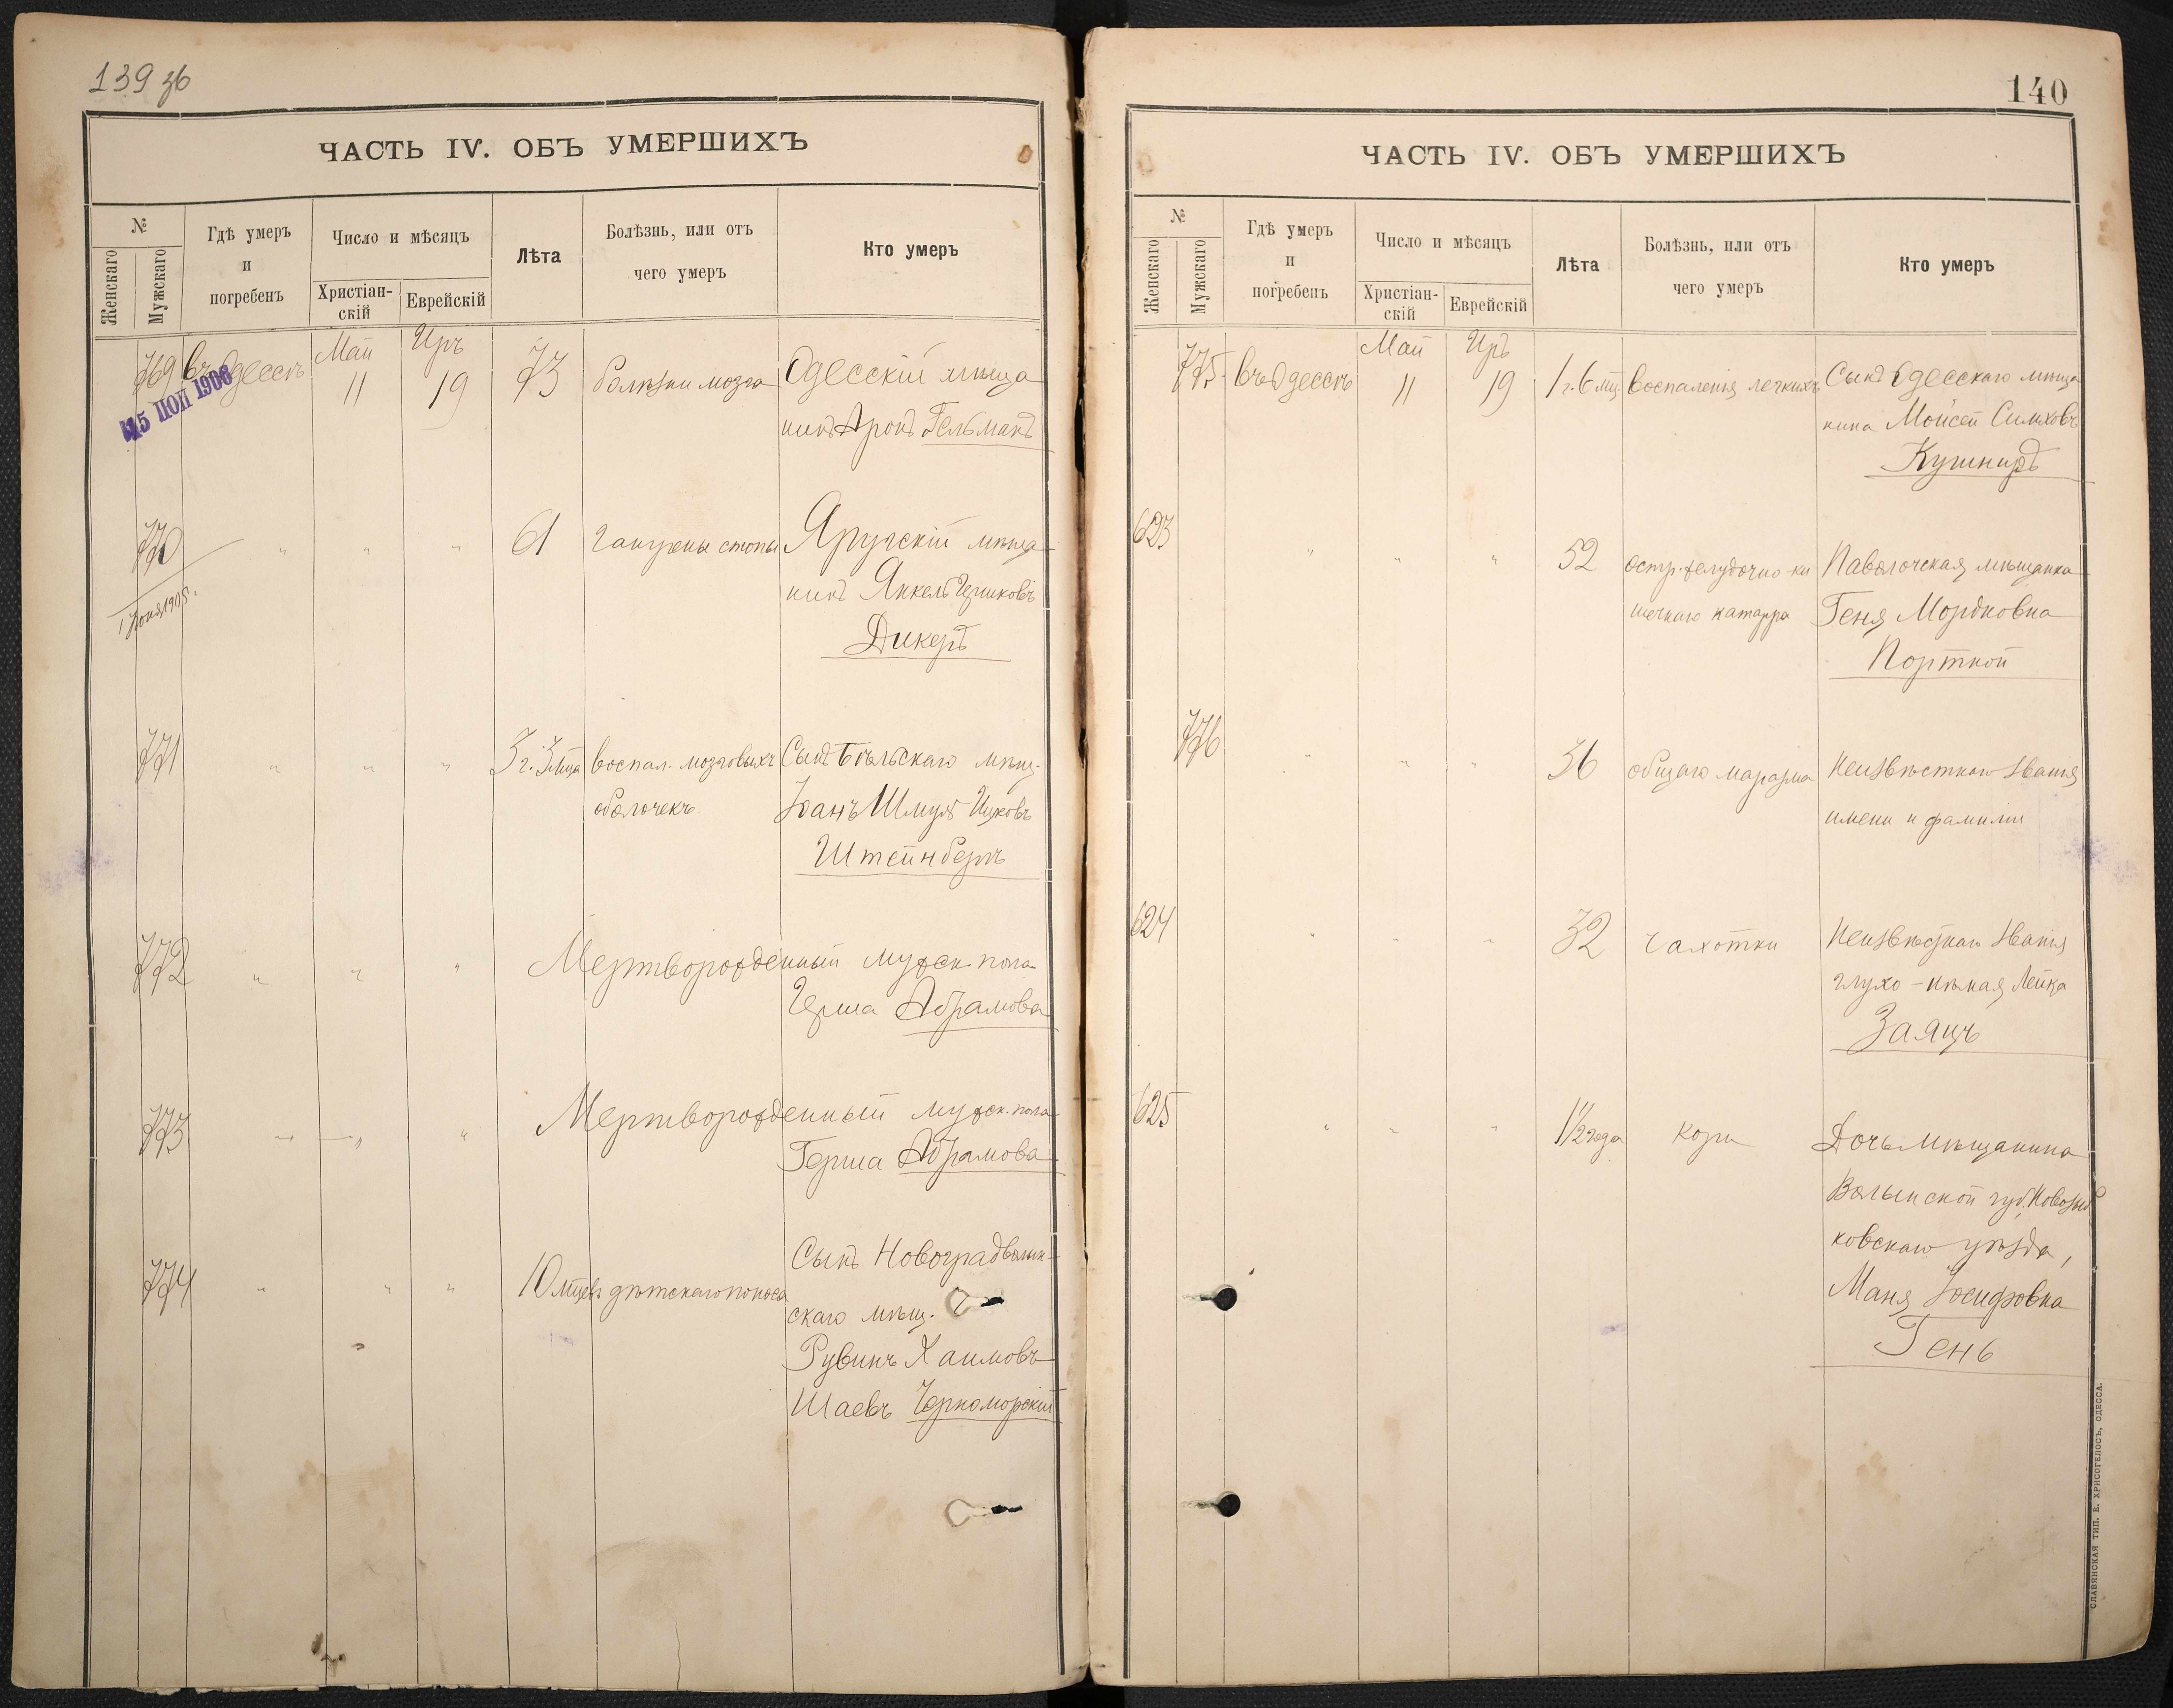 139 зв
ЧАСТЬ IV. ОБЪ УМЕРШИХЪ
№
Женскаго
Мужскаго
Гдѣ умеръ
и
погребенъ
Число и мѣсяцъ
Христіан-
скій
Еврейскій
Лѣта
Болѣзнь, или отъ
чего умеръ
Кто умеръ
Май Иръ
769 въ Одессѣ 11 19 73 болѣзни мозга Одесскій мѣща
нинъ Аронъ Гельманъ
15 1906
770 " " " 61 гангрены стопы Яругскій мѣща
нинъ Янкель Гершковъ
Дикеръ
1 Іюня 1905 г.
771 " " " 3 г. 3 мѣца воспал. мозговыхъ Сынъ Бѣльскаго мѣщ.
оболочекъ Іоанъ Шмуль Ицковъ
Штейнбергъ
772 " " " Мертворожденный мужск. пола
Герша Абрамова
773 " " " Мертворожденный мужск. пола
Герша Абрамова
774 " " " 10 мѣцевъ дѣтскаго поноса Сынъ Новоградволын-
скаго мѣщ.
Рувинъ Хаимовъ
Шаевъ Черноморскій
140
ЧАСТЬ IV. ОБЪ УМЕРШИХЪ
№
Женскаго
Мужскаго
Гдѣ умеръ
и
погребенъ
Число и мѣсяцъ
Христіан-
скій
Еврейскій
Лѣта
Болѣзнь, или отъ
чего умеръ
Кто умеръ
Май Иръ
775 въ Одессѣ 11 19 1 г. 6 мц. воспаленія легкихъ Сынъ Одесскаго мѣща
нина Мойсей Симховъ
Кушниръ
623 " " " 52 остр. желудочно-ки Паволочская мѣщанка
шечнаго катарра Геня Мордковна
Портной
776 " " " 36 общаго маразма Неизвѣстнаго званія
имени и фамиліи
624 " " " 32 чахотки Неизвѣстнаго званія
глухо-нѣмая Лейка
Заяцъ
625 " " " 1½ года кори Дочь мѣщанина
Волынской губ.
ковскаго уѣзда,
Маня Іосифовна
Гень
СЛАВЯНСКАЯ ТИП. Е. ХРИСОГЕЛОСЪ, ОДЕССА.